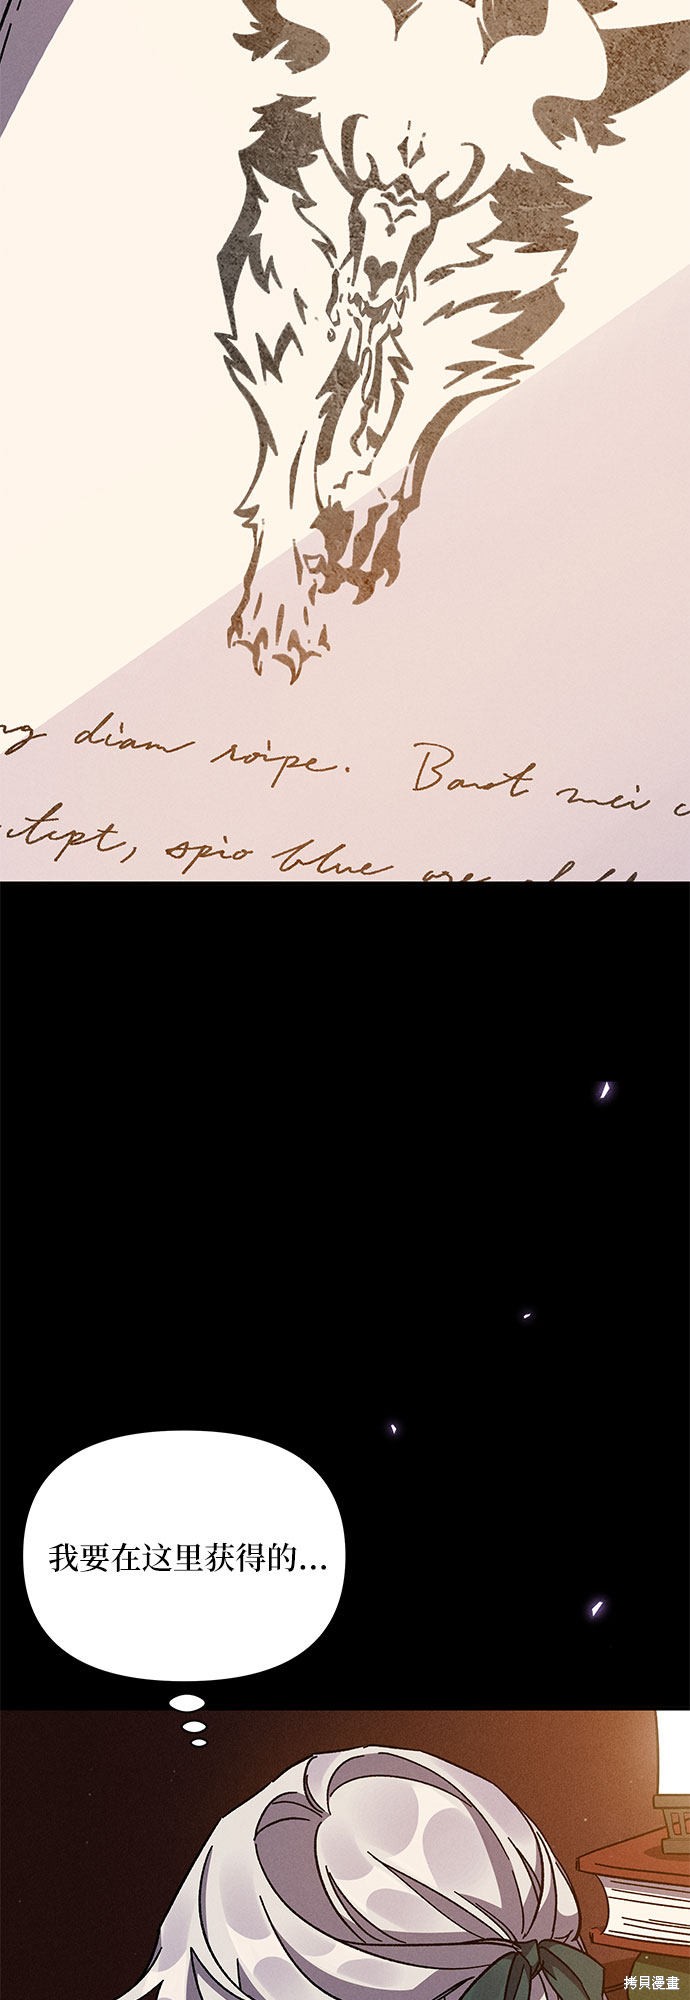 diam roipe. Barot mei
tept, spio blue are
我要在这里获得的...
拷貝漫畫